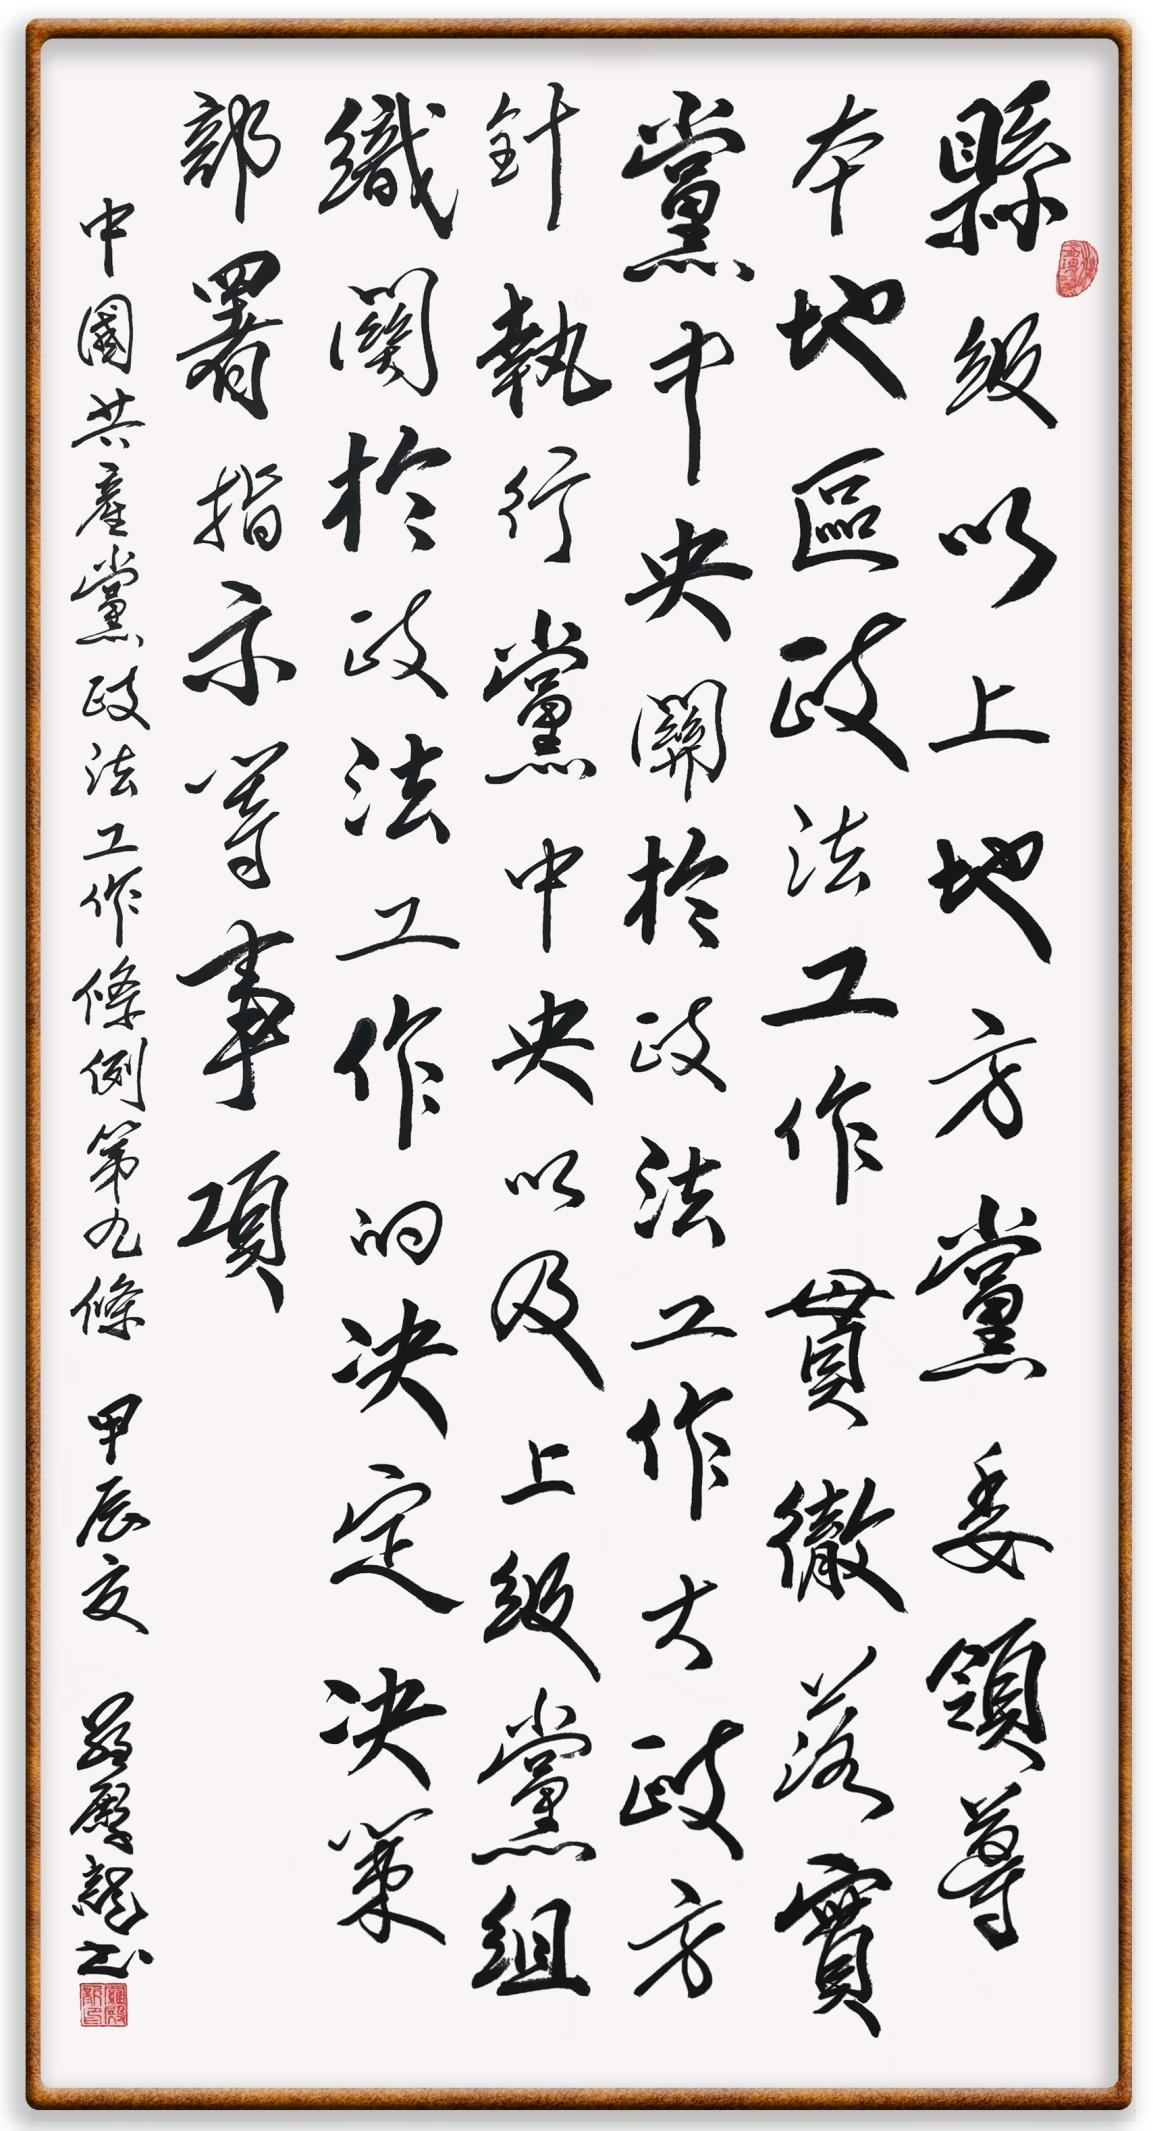 縣級以上地方黨委領導
本地區政法工作貫徹落實
黨中央關於政法工作大政方
針執行黨中央以及上級黨組
織關於政法工作的决定决策
部署指示等事項
中國共產黨政法工作條例第九條 甲辰夏 羅殿龍书